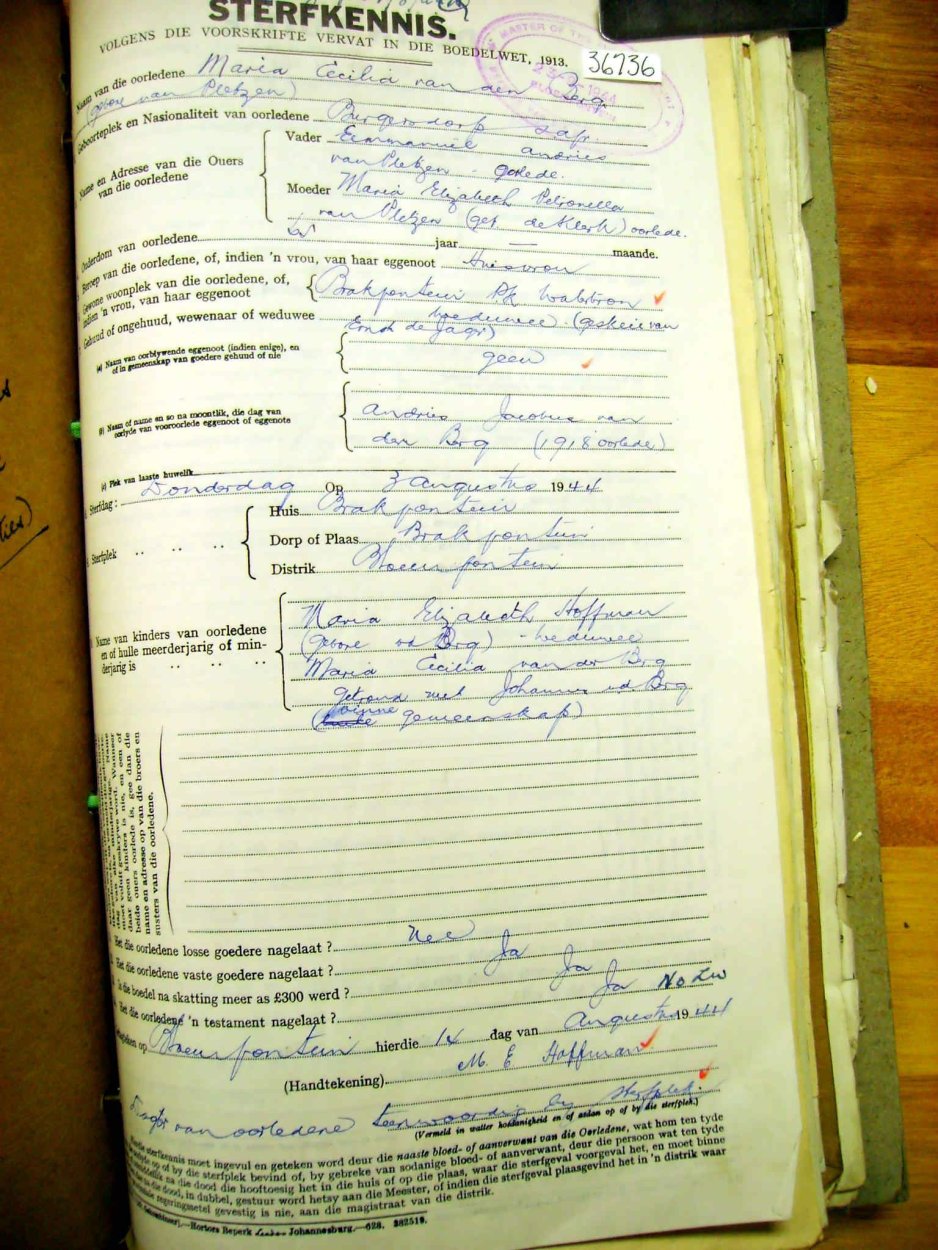 STERFKENNIS.
VOLGENS DIE VOORSKRIFTE VERVAT IN DIE BOEDELWET, 1913.
36736
MASTER OF THE
Naam van die oorledene Maria Cecilia van den Berg
(gebore van Pletzen)
Geboorteplek en Nasionaliteit van oorledene Burgersdorp S. Afr.
Name en Adresse van die Ouers van die oorledene
Vader Emmanuel Andries
van Pletzen - oorlede.
Moeder Maria Elizabeth Petronella
van Pletzen (geb. de Klerk) oorlede.
Ouderdom van oorledene jaar — maande.
Beroep van die oorledene, of, indien 'n vrou, van haar eggenoot Huisvrou
Gewone woonplek van die oorledene, of,
indien 'n vrou, van haar eggenoot
Brakfontein Pk Waterbron
Gehuud of ongehuud, wewenaar of weduwee weduwee (geskei van
de Jager)
(a) Naam van oorblywende eggenoot (indien enige), en
of in gemeenskap van goedere gehuud of nie
geen
(b) Naam of name en so na moontlik, die dag van
oorlyde van vooroorlede eggenoot of eggenote
Andries Jacobus van
den Berg (1918 oorlede)
(c) Plek van laaste huwelik
Sterfdag: Donderdag Op 3 Augustus 1944
Sterfplek
Huis Brakfontein
Dorp of Plaas Brakfontein
Distrik Bloemfontein
Name van kinders van oorledene
en of hulle meerderjarig of min-
derjarig is
Maria Elizabeth Hoffman
(gebore vd Berg) - weduwee
Maria Cecilia van der Berg
getroud met Johannes v.d. Berg
(binne gemeenskap)
daar geen kinders is nie, gee dan die
name en adresse op van die broers en
susters van die oorledene.
Het die oorledene losse goedere nagelaat? Nee
Het die oorledene vaste goedere nagelaat? Ja
Is die boedel na skatting meer as £300 werd? Ja
Het die oorledene 'n testament nagelaat? Ja
Gegeken op Bloemfontein hierdie 14 dag van Augustus 1944
(Handtekening) M. E. Hoffman
Dogter van oorledene teenwoordig by sterfplek.
(Vermeld in watter hoedanigheid en of aldan op of by die sterfplek.)
sterfkennis moet ingevul en geteken word deur die naaste bloed- of aanverwant van die Oorledene, wat hom ten tyde
op of by die sterfplek bevind of, by gebreke van sodanige bloed- of aanverwant, deur die persoon wat ten tyde
na die dood die hooftoesig het in die huis of op die plaas, waar die sterfgeval voorgeval het, en moet binne
na die dood, in dubbel, gestuur word hetsy aan die Meester, of indien die sterfgeval plaasgevind het in 'n distrik waar
regeringsetel gevestig is nie, aan die magistraat van die distrik.
Hortors Beperk Johannesburg.—628. 382519.